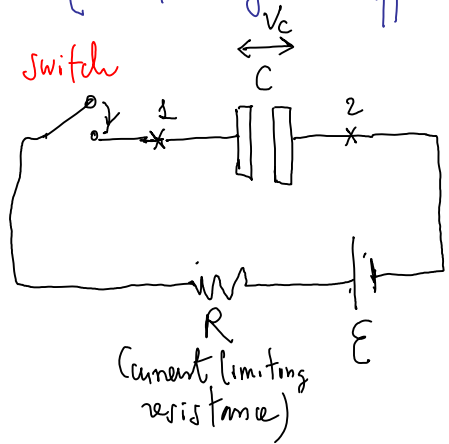 Vc
switch
C
1
2
R
ε
(current limiting
resistance)